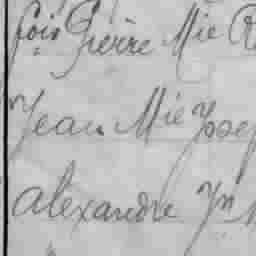 çois Pierre Mie R
Jean Mie Josep
alexandre Jn